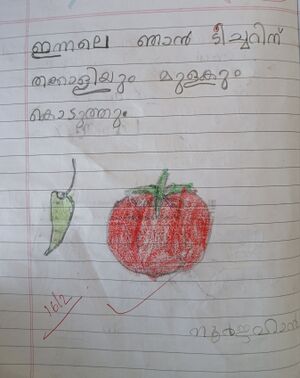 ഇന്നലെ ഞാൻ ടീച്ചറിന്
തക്കാളിയും മുളകും
കൊടുത്തും.
16/2
നൂർജഹാൻ